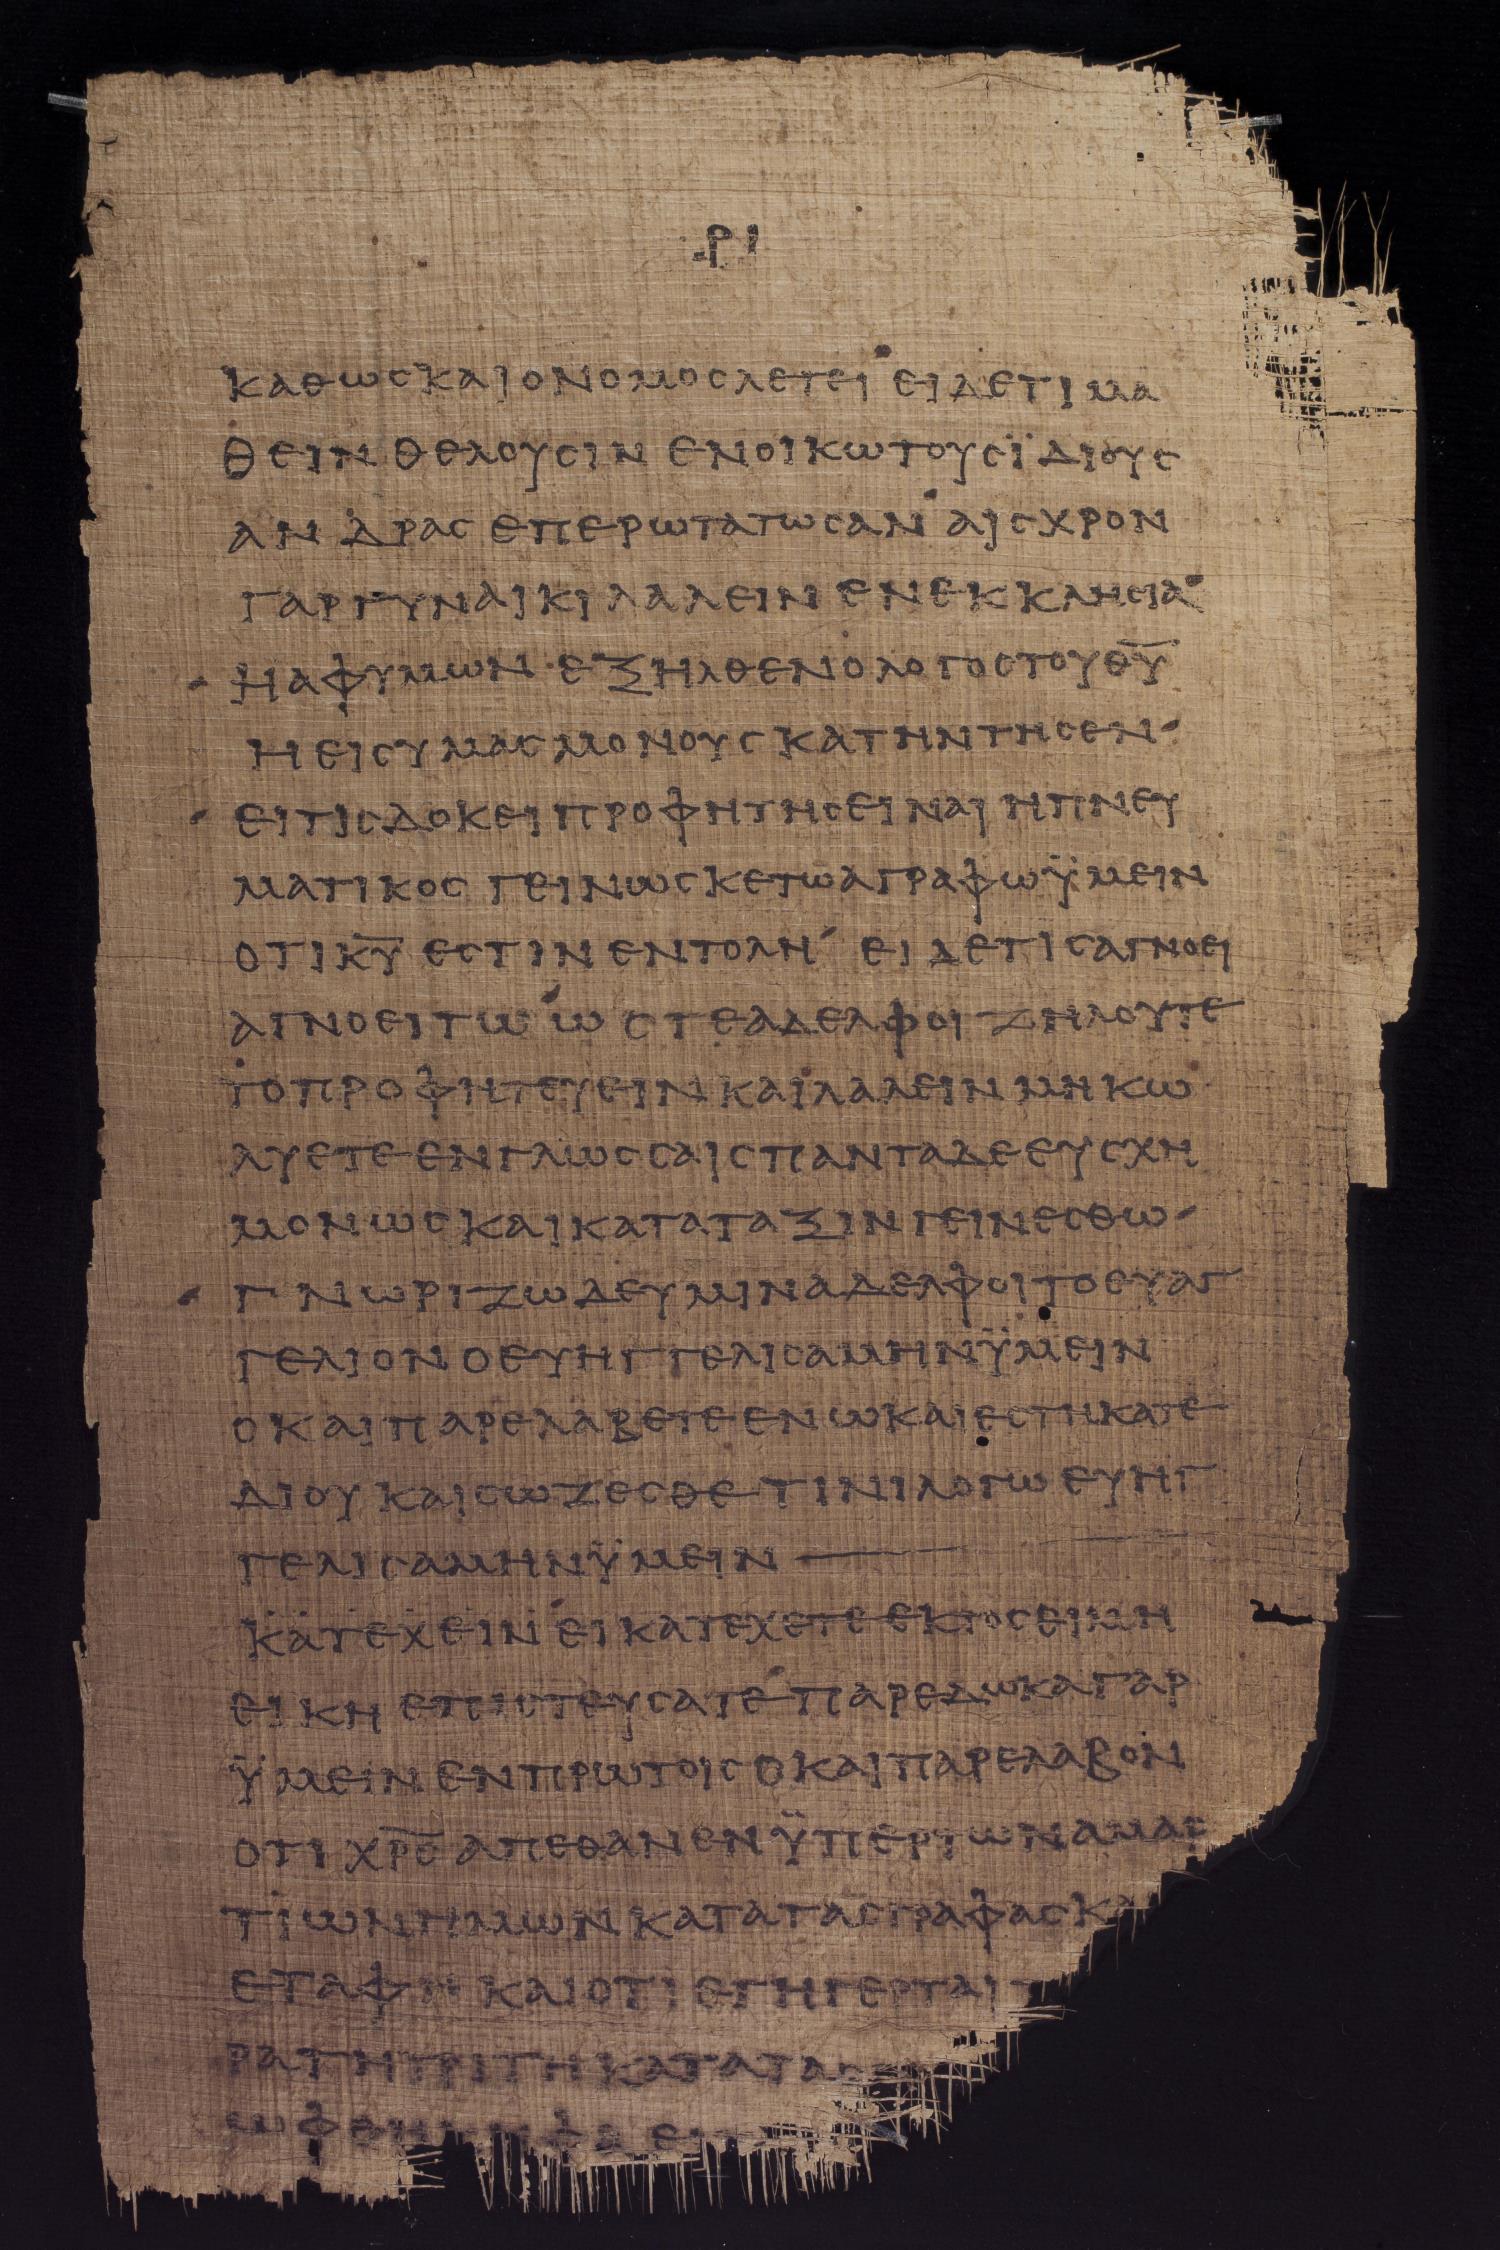 ΡΙ
ΚΑΘΩϹΚΑΙΟΝΟΜΟϹΛΕΓΕΙ ΕΙΔΕΤΙΜΑ
ΘΕΙΝ ΘΕΛΟΥϹΙΝ ΕΝΟΙΚΩΤΟΥϹΪΔΙΟΥϹ
ΑΝΔΡΑϹ ΕΠΕΡΩΤΑΤΩϹΑΝ ΑΙϹΧΡΟΝ
ΓΑΡΓΥΝΑΙΚΙ ΛΑΛΕΙΝ ΕΝΕΚΚΛΗϹΙΑ
ΗΑΦΥΜΩΝ ΕΞΗΛΘΕΝΟΛΟΓΟϹΤΟΥΘ̅Υ̅
ΗΕΙϹΥΜΑϹΜΟΝΟΥϹΚΑΤΗΝΤΗϹΕΝ
ΕΙΤΙϹΔΟΚΕΙΠΡΟΦΗΤΗϹΕΙΝΑΙΗΠΝΕΥ
ΜΑΤΙΚΟϹ ΓΕΙΝΩϹΚΕΤΩΑΓΡΑΦΩΫΜΕΙΝ
ΟΤΙΚ̅Υ̅ ΕϹΤΙΝΕΝΤΟΛΗ ΕΙΔΕΤΙϹΑΓΝΟΕΙ
ΑΓΝΟΕΙΤΩ ΩϹΤΕΑΔΕΛΦΟΙ ΖΗΛΟΥΤΕ
ΤΟΠΡΟΦΗΤΕΥΕΙΝΚΑΙΛΑΛΕΙΝΜΗΚΩ
ΛΥΕΤΕΕΝΓΛΩϹϹΑΙϹΠΑΝΤΑΔΕΕΥϹΧΗ
ΜΟΝΩϹΚΑΙΚΑΤΑΤΑΞΙΝΓΕΙΝΕϹΘΩ
ΓΝΩΡΙΖΩΔΕΥΜΙΝΑΔΕΛΦΟΙΤΟΕΥΑΓ
ΓΕΛΙΟΝΟΕΥΗΓΓΕΛΙϹΑΜΗΝΫΜΕΙΝ
ΟΚΑΙΠΑΡΕΛΑΒΕΤΕΕΝΩΚΑΙΕϹΤΗΚΑΤΕ
ΔΙΟΥΚΑΙϹΩΖΕϹΘΕΤΙΝΙΛΟΓΩΕΥΗΓ
ΓΕΛΙϹΑΜΗΝΫΜΕΙΝ
ΚΑΤΕΧΕΙΝ ΕΙΚΑΤΕΧΕΤΕΕΚΤΟϹΕΙΜΗ
ΕΙΚΗ ΕΠΙϹΤΕΥϹΑΤΕΠΑΡΕΔΩΚΑΓΑΡ
ΫΜΕΙΝΕΝΠΡΩΤΟΙϹΟΚΑΙΠΑΡΕΛΑΒΟΝ
ΟΤΙ Χ̅Ρ̅Ϲ̅ ΑΠΕΘΑΝΕΝΫΠΕΡΤΩΝΑΜΑΡ
ΤΙΩΝΗΜΩΝΚΑΤΑΤΑϹΓΡΑΦΑϹΚΑ
ΕΤΑΦΗ ΚΑΙΟΤΙΕΓΗΓΕΡΤΑΙΤ
ΡΑΤΗΤΡΙΤΗΚΑΤΑΤΑϹ
ΩΦΘΗ